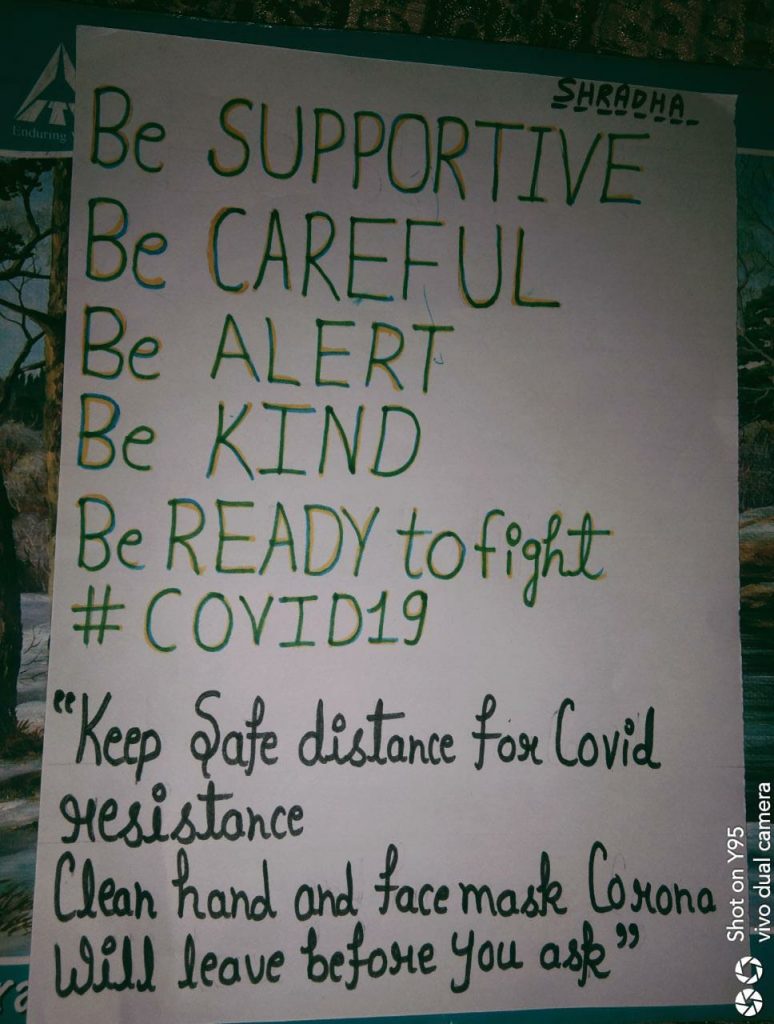 SHRADHA
Enduring
Be SUPPORTIVE
Be CAREFUL
Be ALERT
Be KIND
Be READY to fight
#COVID19
"Keep Safe distance for Covid
resistance
Clean hand and face mask Corona
Will leave before you ask"
Shot on Y95
vivo dual camera